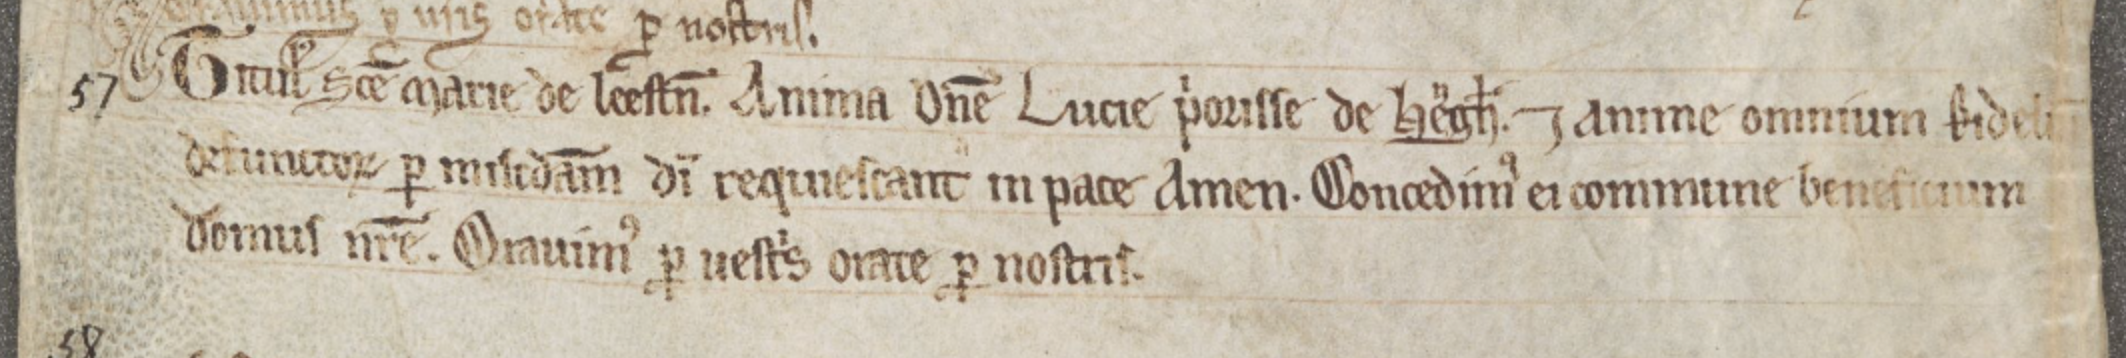 orate ꝑ nostris.
57 Titul̛ Sc̄e Marie de leestn̄. Anima Dn̄e Lucie p̓orisse de Hengh̄. ⁊ anime omnium fideliū
defunctoꝝ ꝑ misc̄dam̄ dī requiescant in pace Amen. Concedimꝰ ei commune beneficium
domus nr̄e. Orauimꝰ ꝑ uestris orate ꝑ nostris.
58